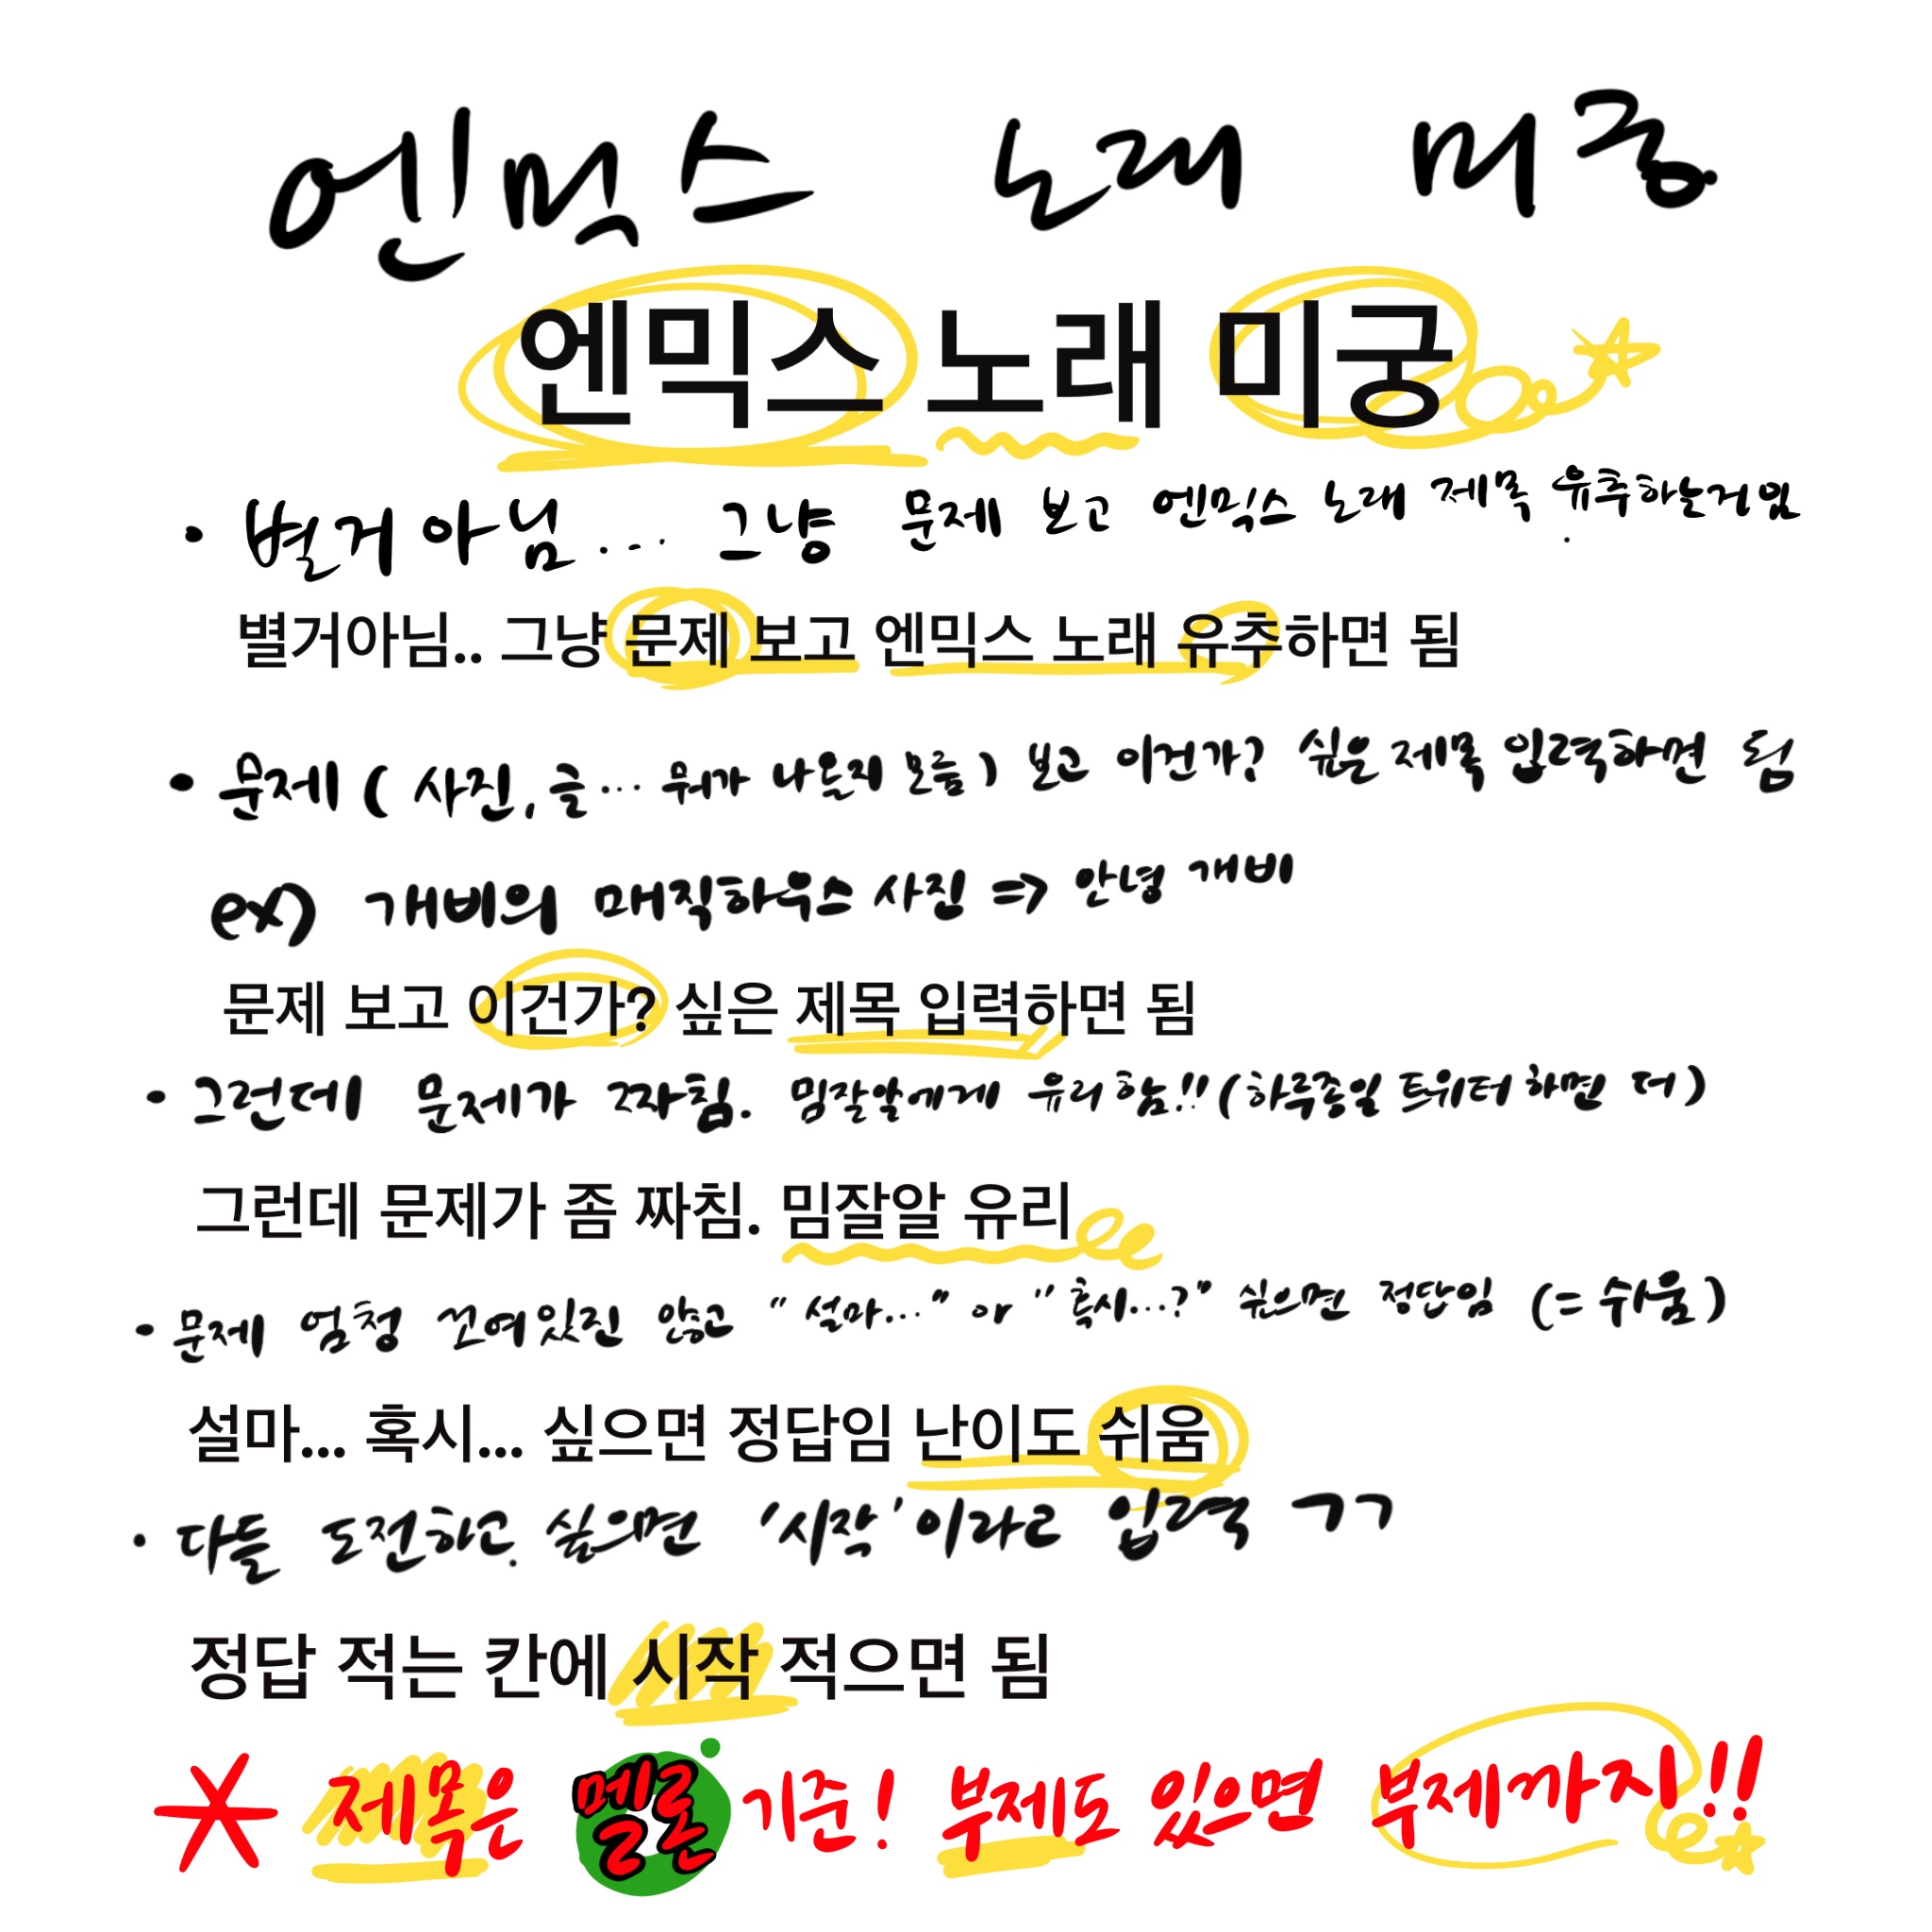 엔믹스 노래 미궁
엔믹스 노래 미궁
• 별거 아님... 그냥 문제 보고 엔믹스 노래 제목 유추하는거임.
별거아님.. 그냥 문제 보고 엔믹스 노래 유추하면 됨
• 문제 ( 사진, 글… 뭐가 나올지 모름) 보고 이건가? 싶은 제목 입력하면 됨
ex) 개비의 매직하우스 사진 => 안녕 개비
문제 보고 이건가? 싶은 제목 입력하면 됨
• 그런데 문제가 짜침. 밈잘알에게 유리함!! (하루종일 트위터 하면 더)
그런데 문제가 좀 짜침. 밈잘알 유리
• 문제 엄청 꼬여있진 않고 "설마..." or "혹시...?" 싶으면 정답임 (= 쉬움)
설마... 혹시... 싶으면 정답임 난이도 쉬움
• 다들 도전하고 싶으면 '시작'이라고 입력 ㄱㄱ
정답 적는 칸에 시작 적으면 됨
* 제목은 멜론 기준! 부제도 있으면 부제까지!!